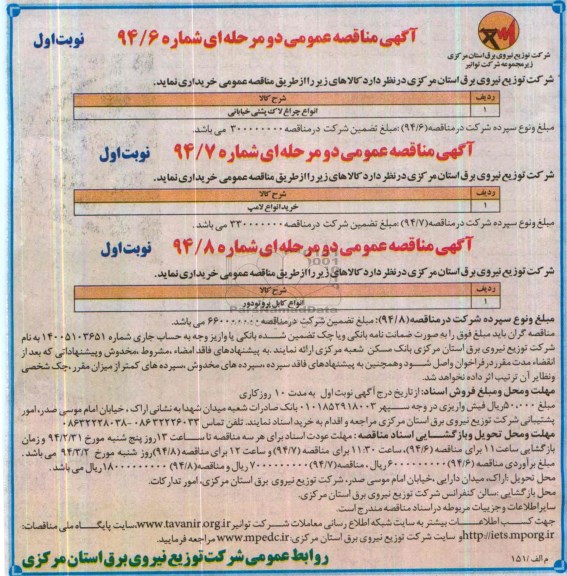 آگهی مناقصه عمومی دو مرحله ای شماره ۹۴/۶ نوبت اول
شرکت توزیع نیروی برق استان مرکزی
زیر مجموعه شرکت توانیر
شرکت توزیع نیروی برق استان مرکزی در نظر دارد کالاهای زیر را از طریق مناقصه عمومی خریداری نماید.
ردیف شرح کالا
۱ انواع چراغ لاک پشتی خیابانی
مبلغ و نوع سپرده شرکت در مناقصه (۹۴/۶): مبلغ تضمین شرکت در مناقصه ۳۰۰۰۰۰۰۰۰ می باشد.
آگهی مناقصه عمومی دو مرحله ای شماره ۹۴/۷ نوبت اول
شرکت توزیع نیروی برق استان مرکزی در نظر دارد کالاهای زیر را از طریق مناقصه عمومی خریداری نماید.
ردیف شرح کالا
۱ خرید انواع لامپ
مبلغ و نوع سپرده شرکت در مناقصه (۹۴/۷): مبلغ تضمین شرکت در مناقصه ۳۳۰۰۰۰۰۰۰ می باشد.
آگهی مناقصه عمومی دو مرحله ای شماره ۹۴/۸ نوبت اول
شرکت توزیع نیروی برق استان مرکزی در نظر دارد کالاهای زیر را از طریق مناقصه عمومی خریداری نماید.
ردیف شرح کالا
۱ انواع کابل پروتودور
مبلغ و نوع سپرده شرکت در مناقصه (۹۴/۸): مبلغ تضمین شرکت در مناقصه ۶۶۰۰۰۰۰۰۰ می باشد.
مناقصه گران باید مبلغ فوق را به صورت ضمانت نامه بانکی ویا چک تضمین شده بانکی یا واریز وجه به حساب جاری شماره ۱۴۰۰۵۱۰۳۶۵۱ به نام
شرکت توزیع نیروی برق استان مرکزی بانک مسکن شعبه مرکزی ارائه نمایند. به پیشنهادهای فاقد امضاء، مشروط، مخدوش وپیشنهاداتی که بعد از
انقضاء مدت مقرر در فراخوان واصل شود وهمچنین به پیشنهادهای فاقد سپرده، سپرده های مخدوش، سپرده های کمتر از میزان مقرر، چک شخصی
ونظایر آن ترتیب اثر داده نخواهد شد.
مهلت ومحل ومبلغ فروش اسناد: از تاریخ درج آگهی نوبت اول به مدت ۱۰ روز کاری
مبلغ ۵۰۰۰۰۰ ریال فیش واریزی در وجه سپهر ۰۱۰۱۸۵۲۹۱۸۰۰۳ بانک صادرات شعبه میدان شهدا به نشانی اراک، خیابان امام موسی صدر، امور
پشتیبانی شرکت توزیع نیروی برق استان مرکزی مراجعه و اقدام به خرید اسناد نمایند. تلفن تماس ۰۸۶۳۲۲۲۶۰۳۳-۰۸۶۳۲۲۲۸۰۳۸
مهلت ومحل تحویل وبازگشایی اسناد مناقصه: مهلت عودت اسناد برای هر سه مناقصه تا ساعت ۱۳ روز پنج شنبه مورخ ۹۴/۲/۳۱ و زمان
بازگشایی ساعت ۱۱ برای مناقصه (۹۴/۶)، ساعت ۱۱:۳۰ برای مناقصه (۹۴/۷) و ساعت ۱۲ برای مناقصه (۹۴/۸) روز شنبه مورخ ۹۴/۳/۲ می باشد.
محل تحویل :اراک، میدان دارایی، خیابان امام موسی صدر، شرکت توزیع نیروی برق استان مرکزی، امور تدارکات.
محل بازگشایی :سالن کنفرانس شرکت توزیع نیروی برق استان مرکزی.
سایر اطلاعات وجزییات مربوطه در اسناد مناقصه مندرج است.
جهت کسب اطلاعات بیشتر به سایت شبکه اطلاع رسانی معاملات شرکت توانیر www.tavanir.org.ir، سایت پایگاه ملی مناقصات:
http://iets.mporg.ir و سایت شرکت توزیع نیروی برق استان مرکزی www.mpedc.ir مراجعه فرمایید.
م الف /۱۵۱ روابط عمومی شرکت توزیع نیروی برق استان مرکزی
ParsNamadData